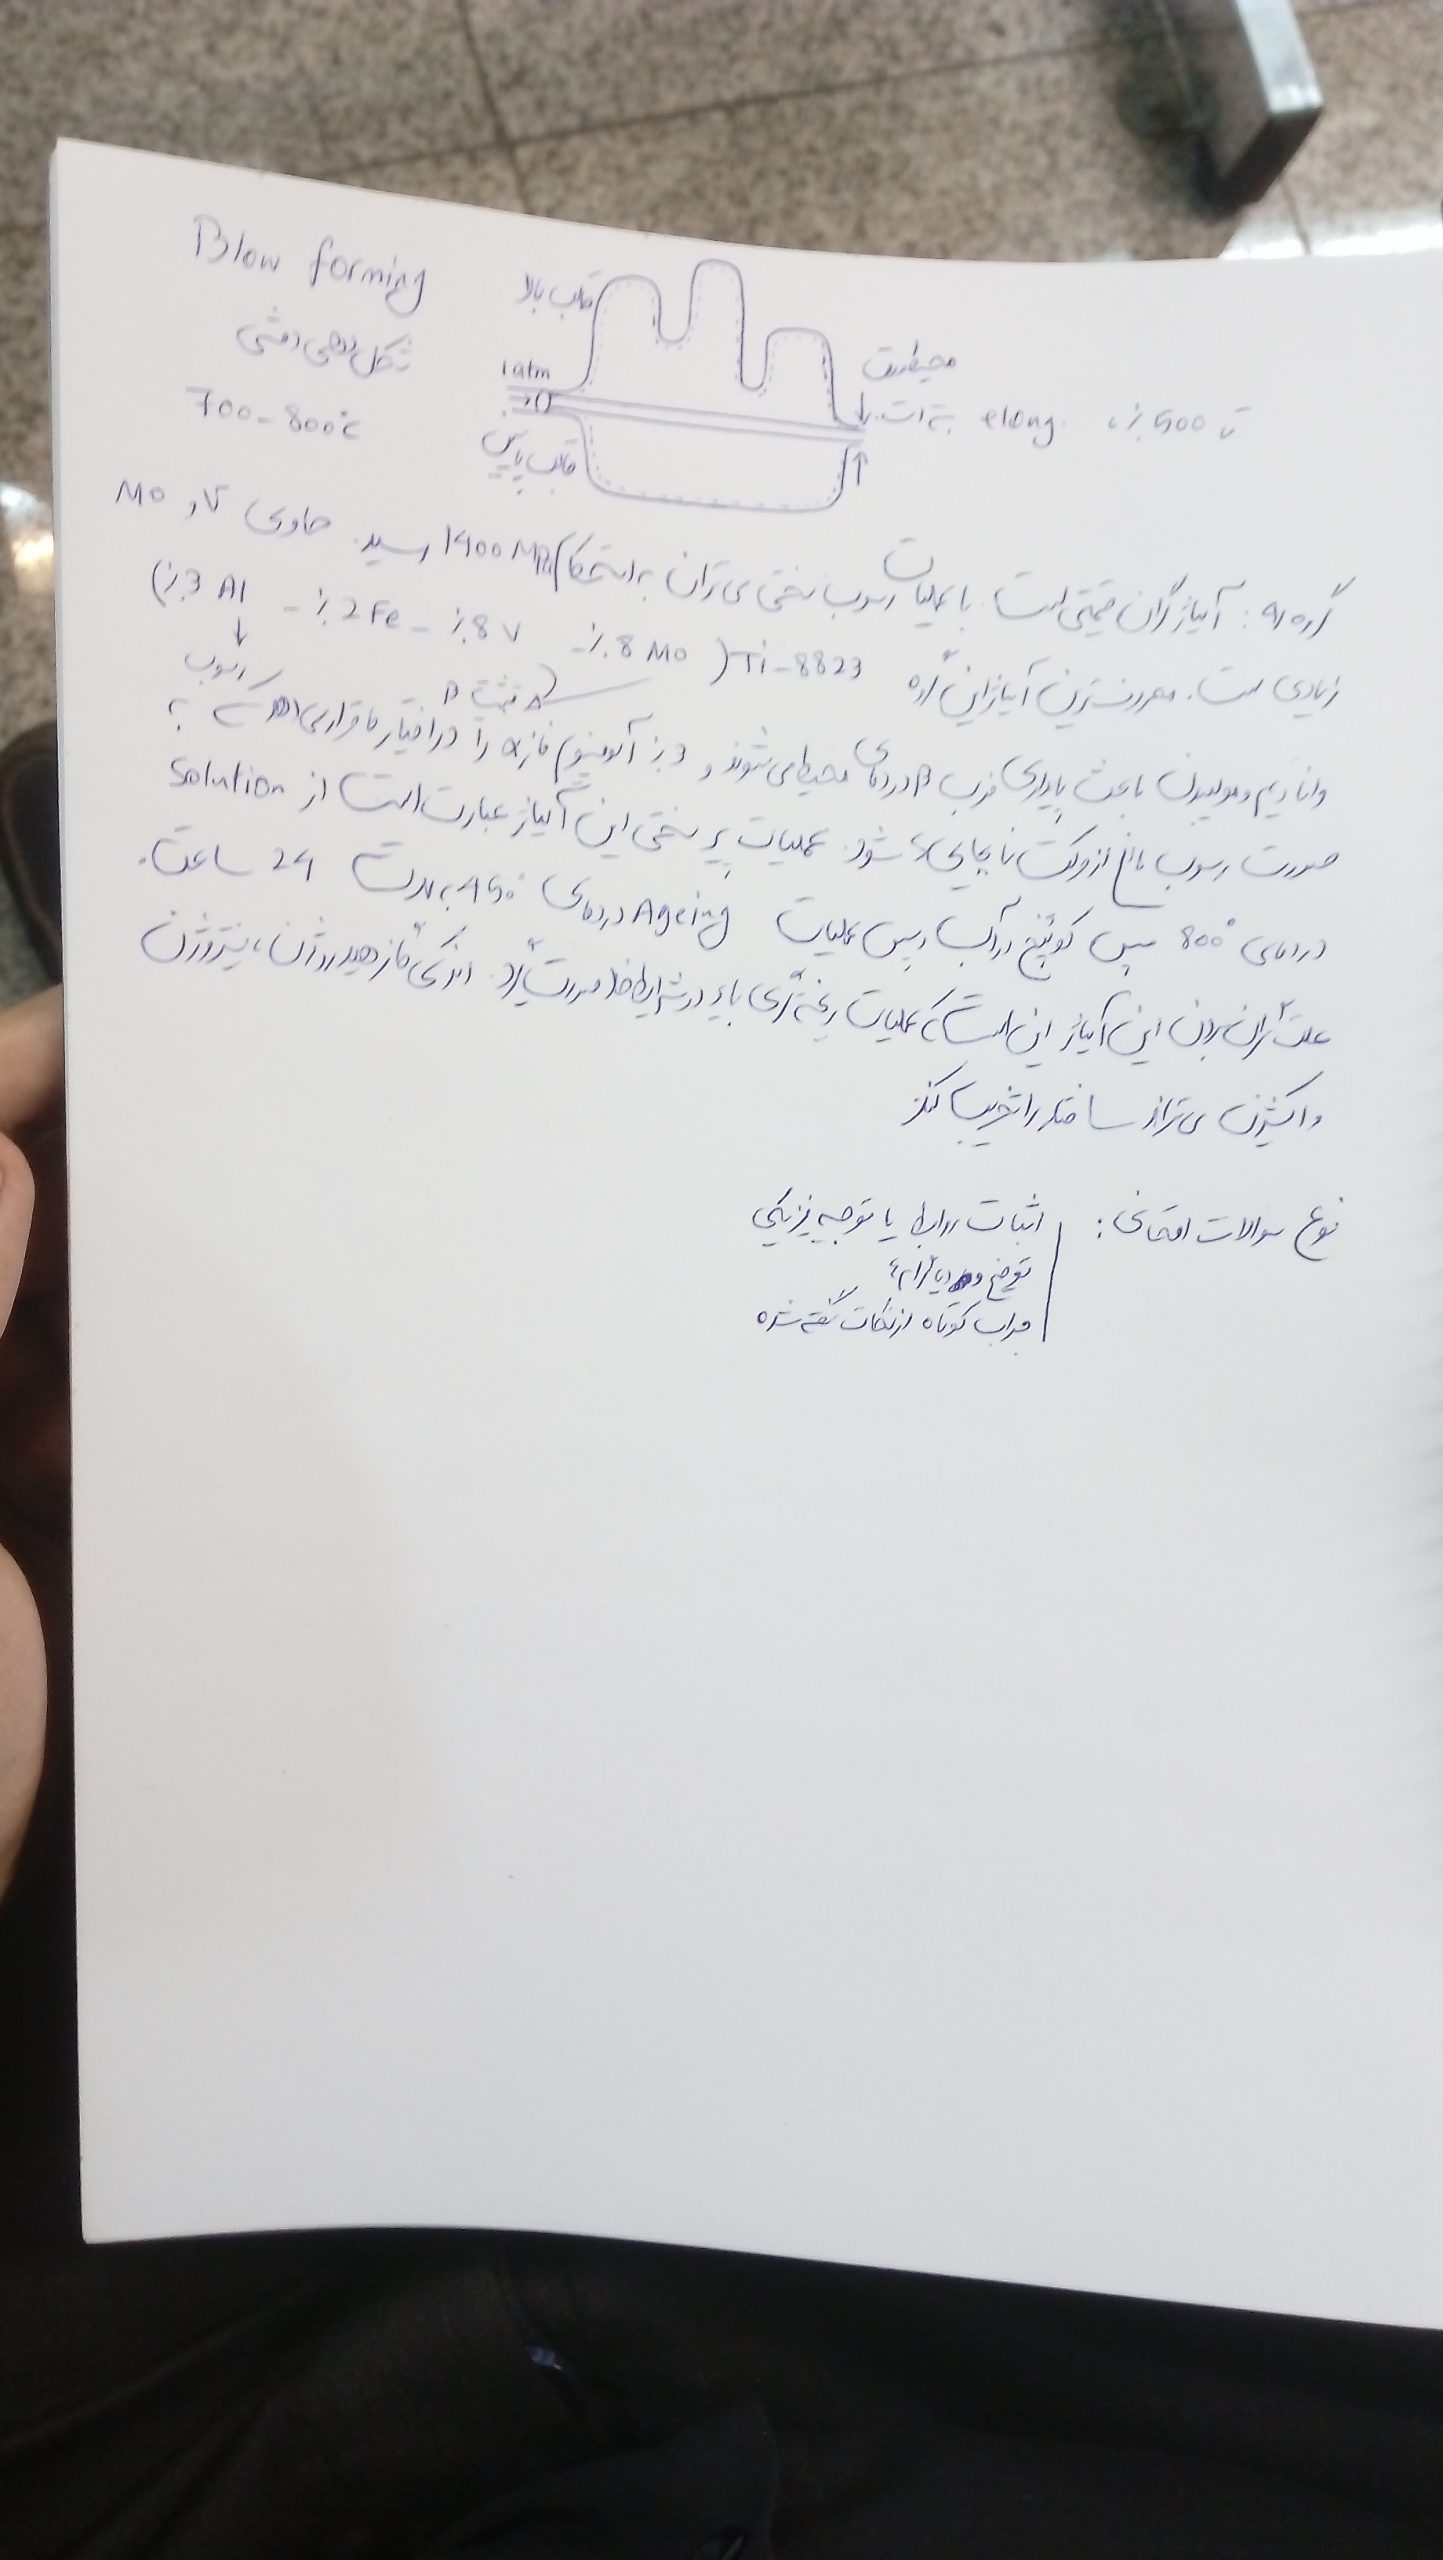 Blow forming
شکل دهی دمشی
700-800°C
قالب بالا
1 atm
قالب پایین
محیط
تا 500٪ elong. است
گروه 4: آلیاژ گران قیمتی است. با عملیات رسوب سختی می توان به استحکام 1400 MPa رسید. حاوی V و Mo
زیادی است. معروفترین آلیاژ این گروه Ti-8823 (8٪ Mo - 8٪ V - 2٪ Fe - 3٪ Al)
تثبیت β
رسوب
وانادیم و مولیبدن باعث پایداری فاز β در دمای محیط می شوند و 3٪ آلومینیوم فاز α را در اختیار ما قرار می دهد که به
صورت رسوب مانع از حرکت نابجایی ها شود. عملیات پیر سختی این آلیاژ عبارت است از Solution
در دمای 800° سپس کوئنچ در آب و سپس عملیات Ageing در دمای 450° به مدت 24 ساعت.
علت گران بودن این آلیاژ این است که عملیات ریخته گری باید در شرایط خلا صورت گیرد. اندکی گاز هیدروژن، نیتروژن
و اکسیژن می تواند ساختار را تخریب کند
نوع سوالات امتحانی: اثبات روابط یا توجیه فیزیکی
توضیح دیاگرام ها
جواب کوتاه از نکات گفته شده